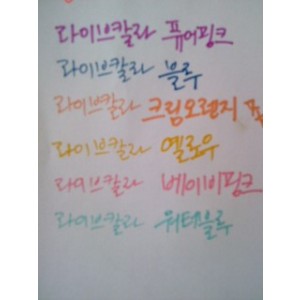 라이브칼라 퓨어핑크
라이브칼라 블루
라이브칼라 크림오렌지
라이브칼라 옐로우
라이브칼라 베이비핑크
라이브칼라 워터블루